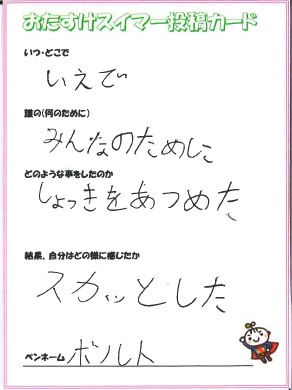 おたすけスイマー投稿カード
いつ・どこで
いえで
誰の(何のために)
みんなのために
どのような事をしたのか
しょっきをあつめた
結果、自分はどの様に感じたか
スカッとした
ペンネーム ボルト